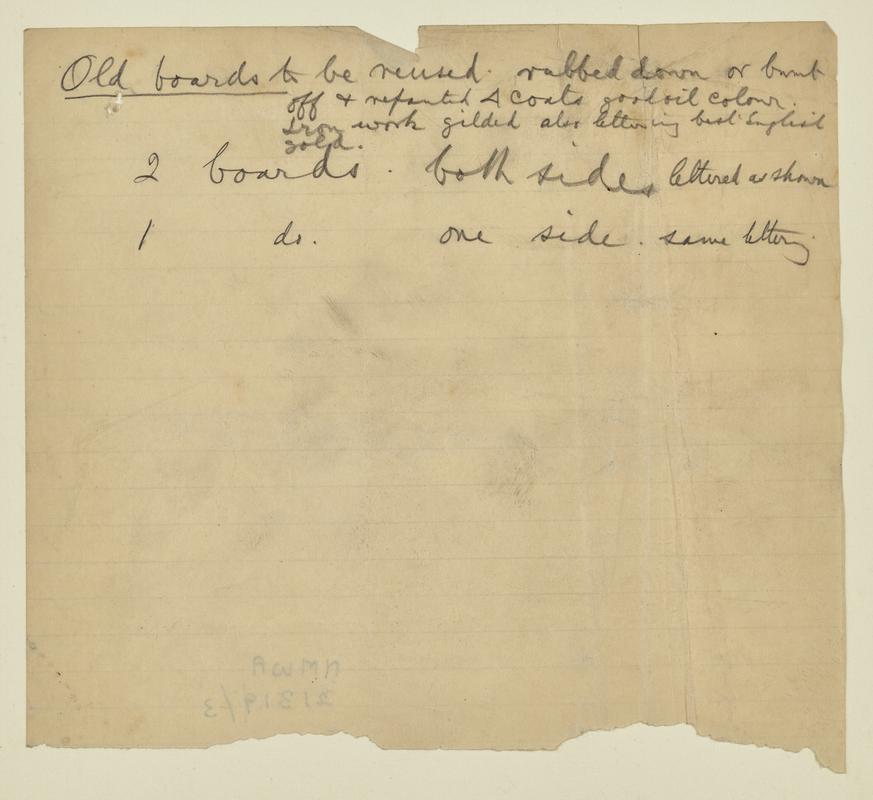 Old boards to be reused. rubbed down or burnt
off & repainted 4 coats good oil colour.
Iron work gilded also lettering best English
gold.
2 boards. both sides lettered as shown
1 do. one side. same lettering
AWMA
21319/3